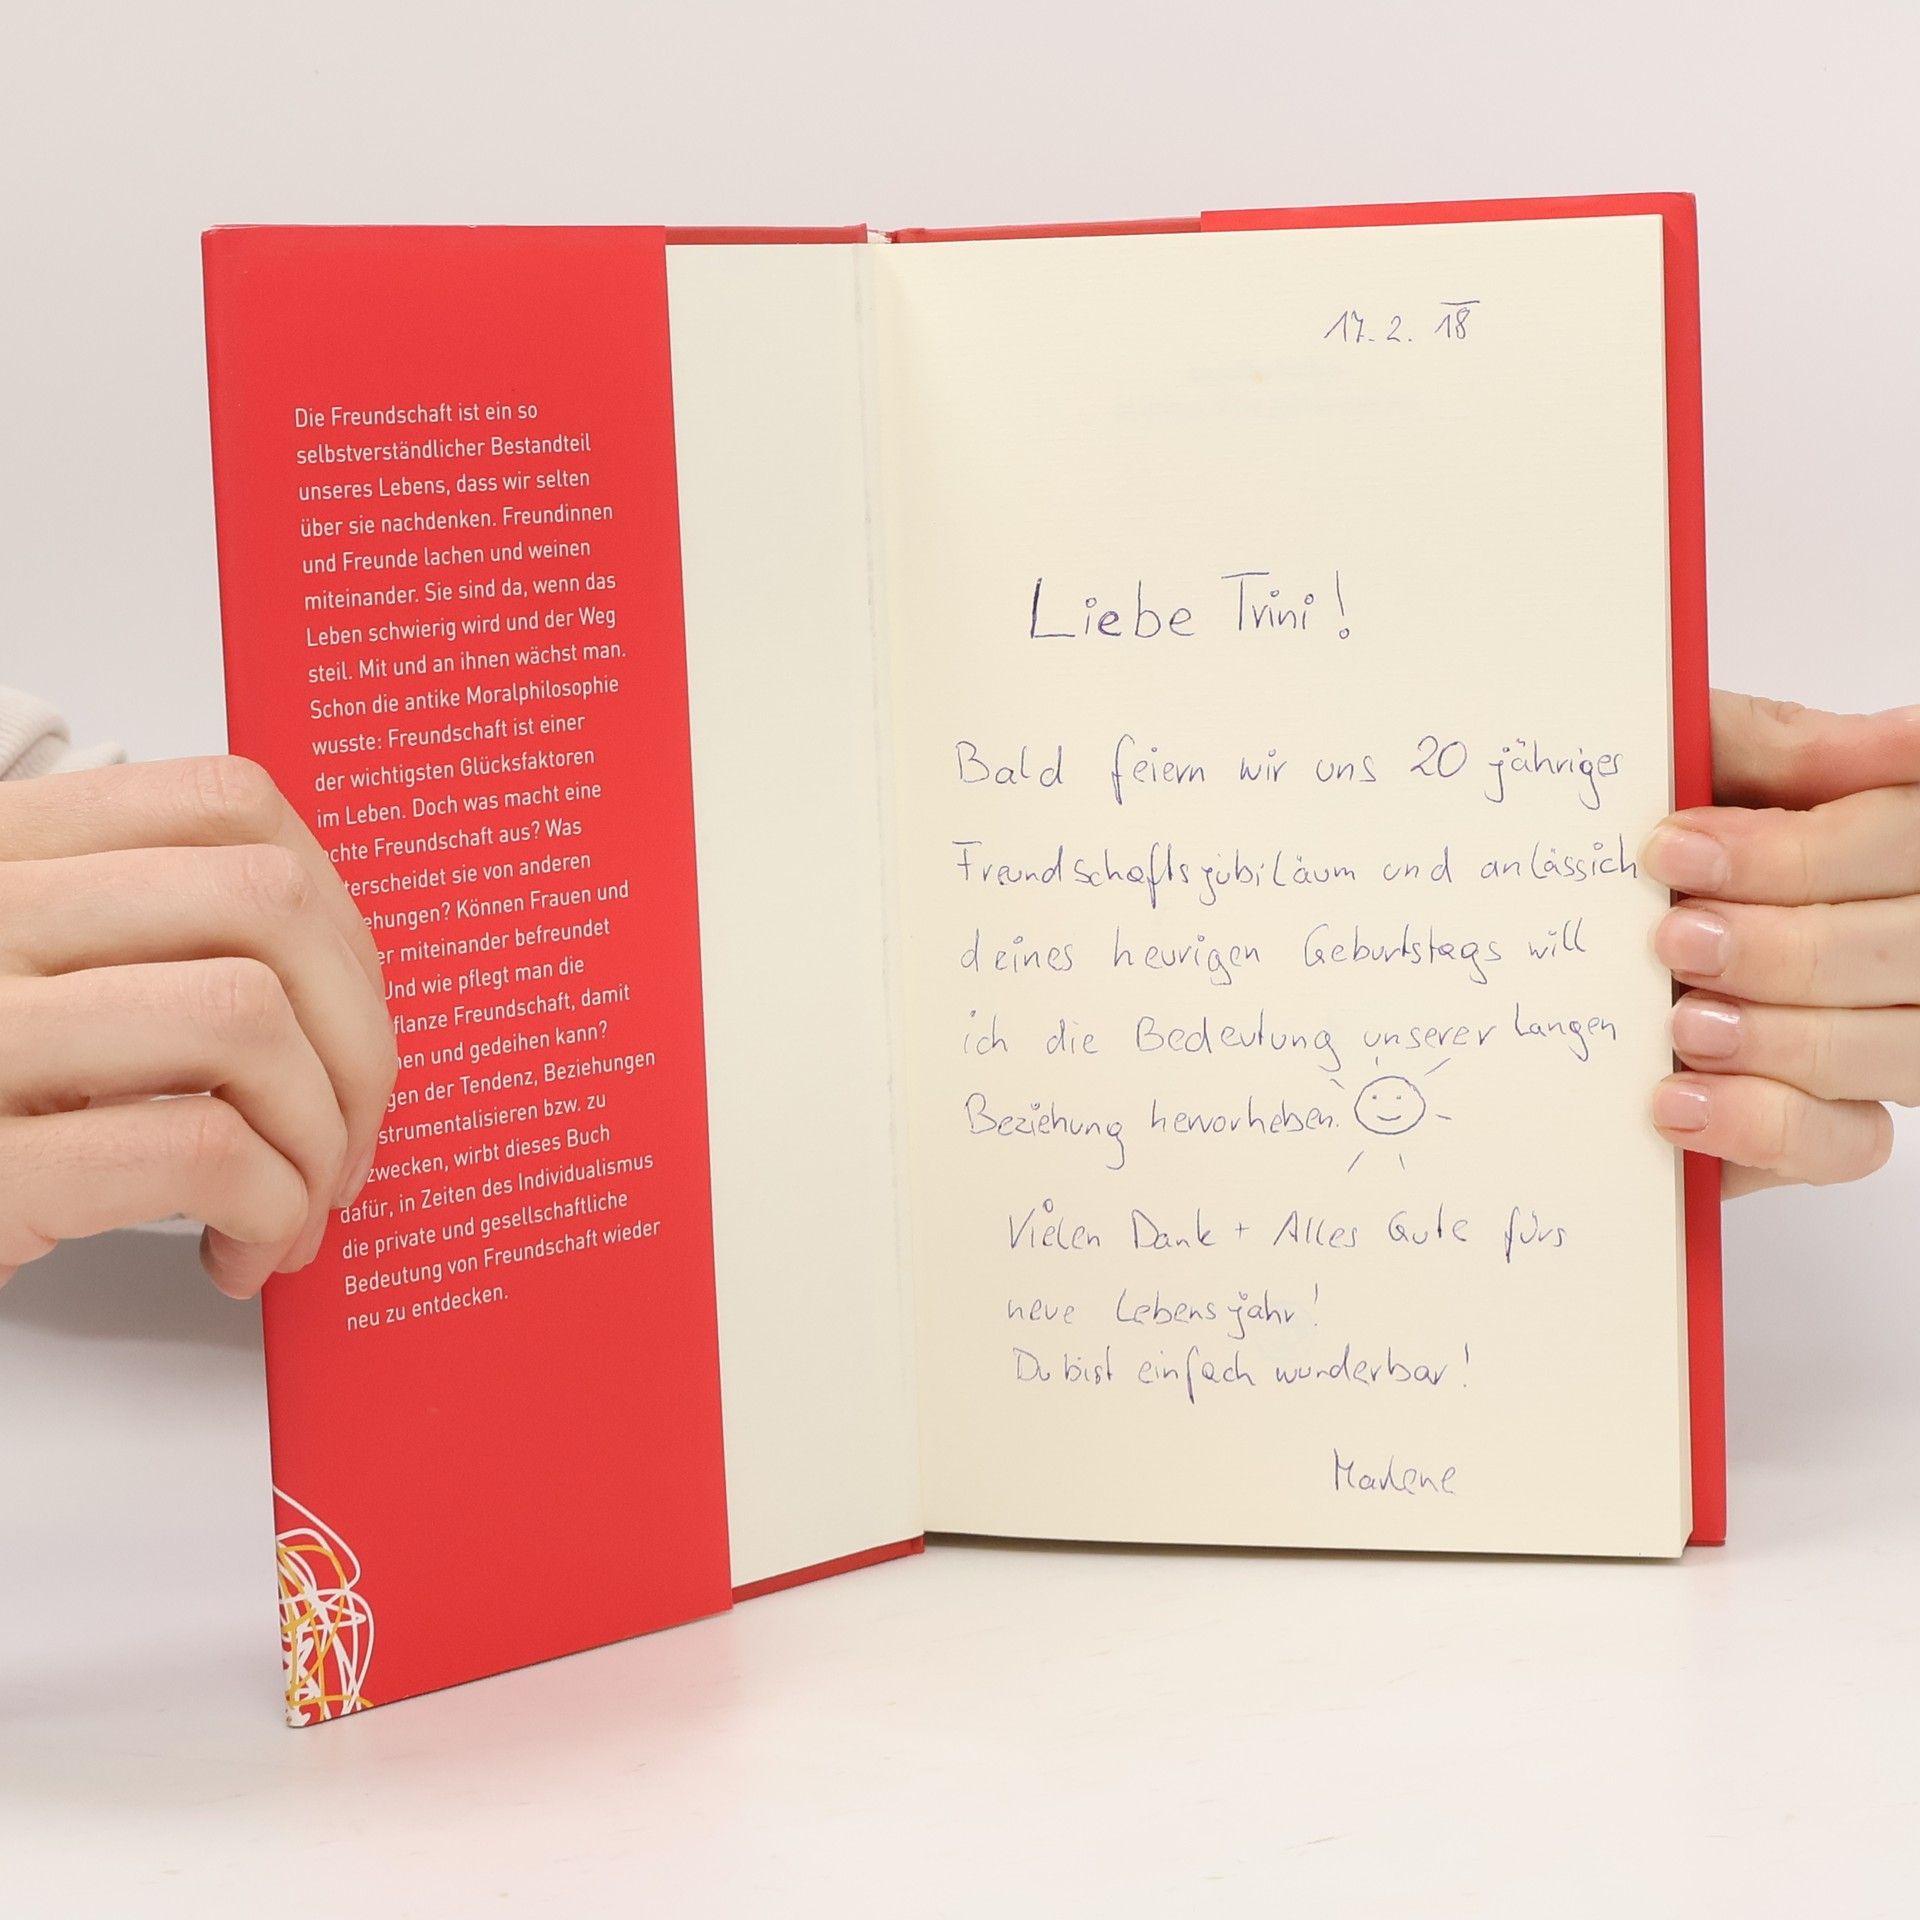 Die Freundschaft ist ein so
selbstverständlicher Bestandteil
unseres Lebens, dass wir selten
über sie nachdenken. Freundinnen
und Freunde lachen und weinen
miteinander. Sie sind da, wenn das
Leben schwierig wird und der Weg
steil. Mit und an ihnen wächst man.
Schon die antike Moralphilosophie
wusste: Freundschaft ist einer
der wichtigsten Glücksfaktoren
im Leben. Doch was macht eine
chte Freundschaft aus? Was
terscheidet sie von anderen
ehungen? Können Frauen und
er miteinander befreundet
Und wie pflegt man die
flanze Freundschaft, damit
en und gedeihen kann?
gen der Tendenz, Beziehungen
strumentalisieren bzw. zu
zwecken, wirbt dieses Buch
dafür, in Zeiten des Individualismus
die private und gesellschaftliche
Bedeutung von Freundschaft wieder
neu zu entdecken.
17. 2. 18
Liebe Trini!
Bald feiern wir uns 20 jähriges
Freundschaftsjubiläum und anlässich
deines heurigen Geburtstags will
ich die Bedeutung unserer langen
Beziehung hervorheben.
Vielen Dank + Alles Gute fürs
neue Lebensjahr!
Du bist einfach wunderbar!
Marlene